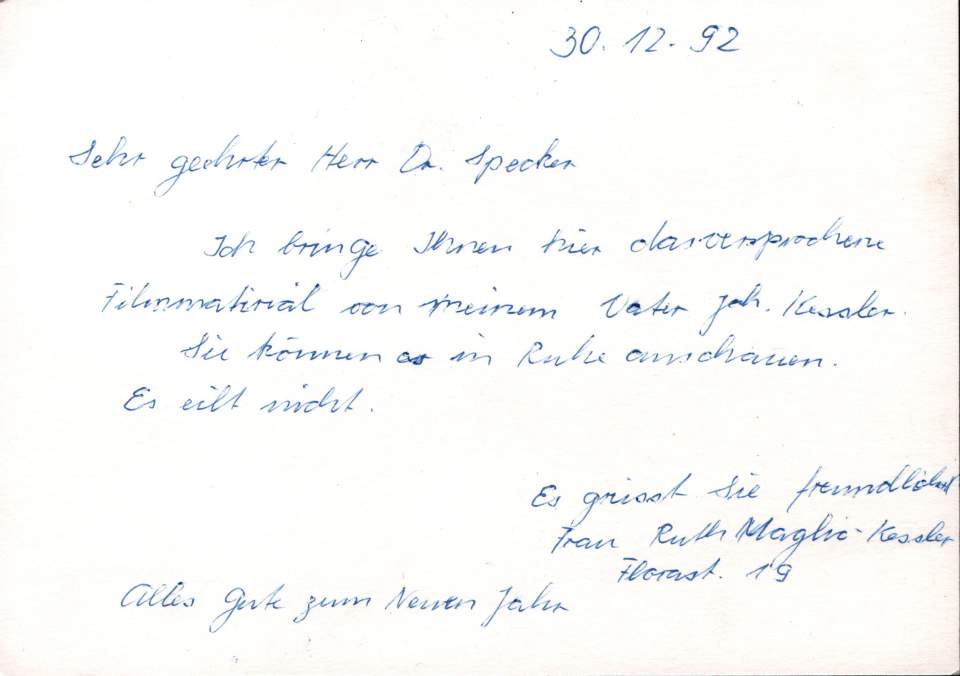 30.12.92
Sehr geehrter Herr Dr. Specker
Ich bringe Ihnen hier das versprochene
Filmmaterial von meinem Vater Joh. Kessler.
Sie können es in Ruhe anschauen.
Es eilt nicht.
Es grüsst Sie freundlichst
Frau Ruth Maglio-Kessler
Florast. 19
Alles Gute zum Neuen Jahr